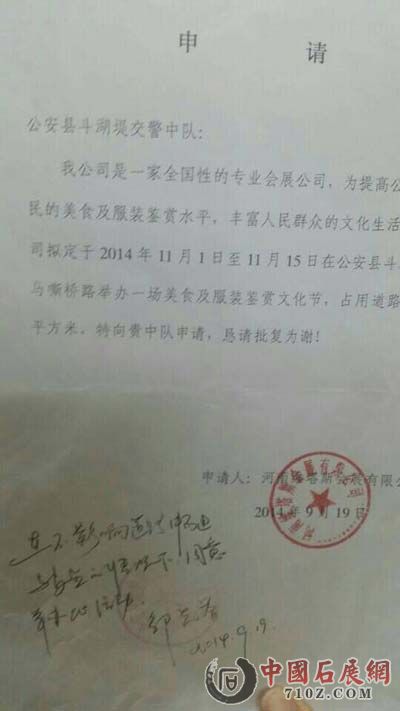 申 请
公安县斗湖堤交警中队：
我公司是一家全国性的专业会展公司，为提高公
民的美食及服装鉴赏水平，丰富人民群众的文化生活
司拟定于 2014 年 11 月 1 日至 11 月 15 日在公安县斗
马嘶桥路举办一场美食及服装鉴赏文化节，占用道路
平方米。特向贵中队申请，恳请批复为谢！
申请人：河南 塔斯会展有限公
2014 年 9 月 19 日
在不影响道路畅通
与安全的情况下，同意
举办此活动。
2014.9.19.
中國石展網
710Z.com